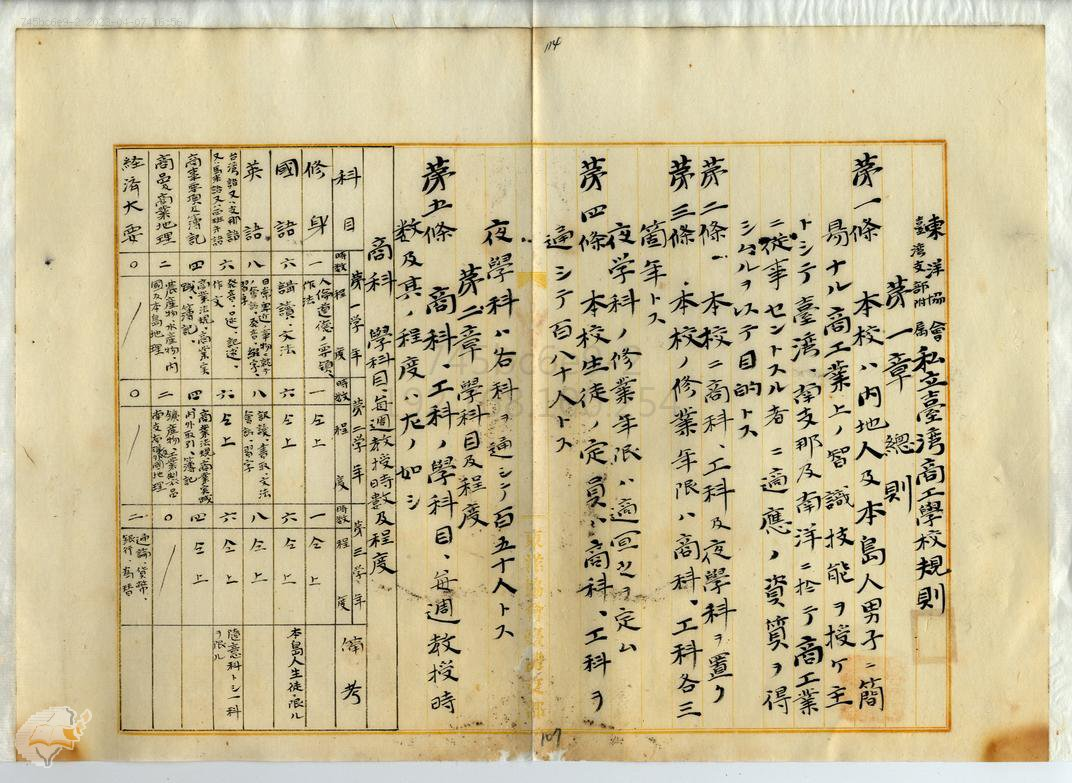 745bc6e9-2 2023-04-07 16:56
114
東洋協會
臺灣支部附属
私立臺灣商工學校規則
第一章 總則
第一條 本校ハ内地人及本島人男子ニ簡
易ナル商工業上ノ智識技能ヲ授ケ主
トシテ臺湾、南支那及南洋ニ於テ商工業
ニ從事セントスル者ニ適應ノ資質ヲ得
シムルヲ以テ目的トス
第二條 本校ニ商科、工科及夜學科ヲ置ク
第三條 本校ノ修業年限ハ商科、工科各三
箇年トス
夜学科ノ修業年限ハ適宜之ヲ定ム
第四條 本校生徒ノ定員ハ商科、工科ヲ
通シテ百八十人トス
夜學科ハ各科ヲ通シテ百五十人トス
第二章 學科目及程度
第五條 商科、工科ノ學科目、每週教授時
数及其ノ程度ハ左ノ如シ
商科 學科目、每週教授時數及程度
科目 第一学年 時数 程度 第二学年 時数 程度 第三学年 時数 程度 備考
修身 一 人倫道德ノ要領、作法 一 仝上 一 仝上
國語 六 講讀、文法 六 仝上 六 仝上 本島人生徒ニ限ル
英語 八 八 仝上
台湾語又ハ支那語又ハ馬来語 六 發音、 作文 六 仝上 六 仝上 隨意科トシ一科ヲ限ル
商事要項及簿記 四 商業法規、商業実践、簿記 四 商業法規、商業実践 内外取引、簿記 四 仝上
商品及商業地理 二 農産物、水産物、内國及本島地理 二 〇
経済大要 〇 〇 二 通論、貨幣、銀行、為替
東洋協會臺灣支部
107